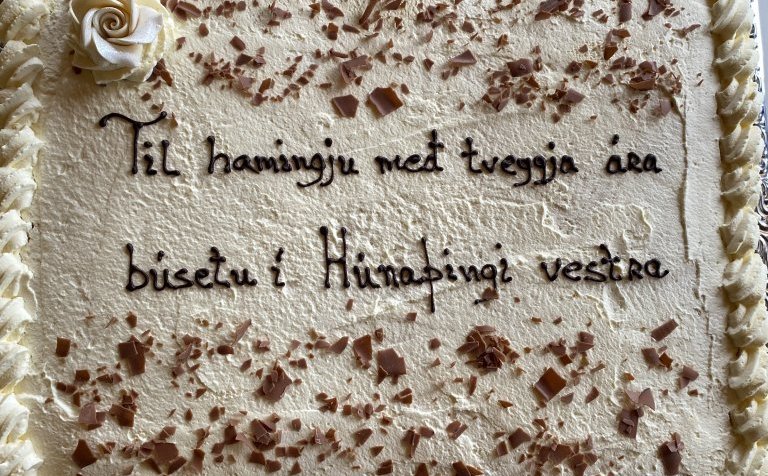 Til hamingju með tveggja ára
búsetu í Húnaþingi vestra